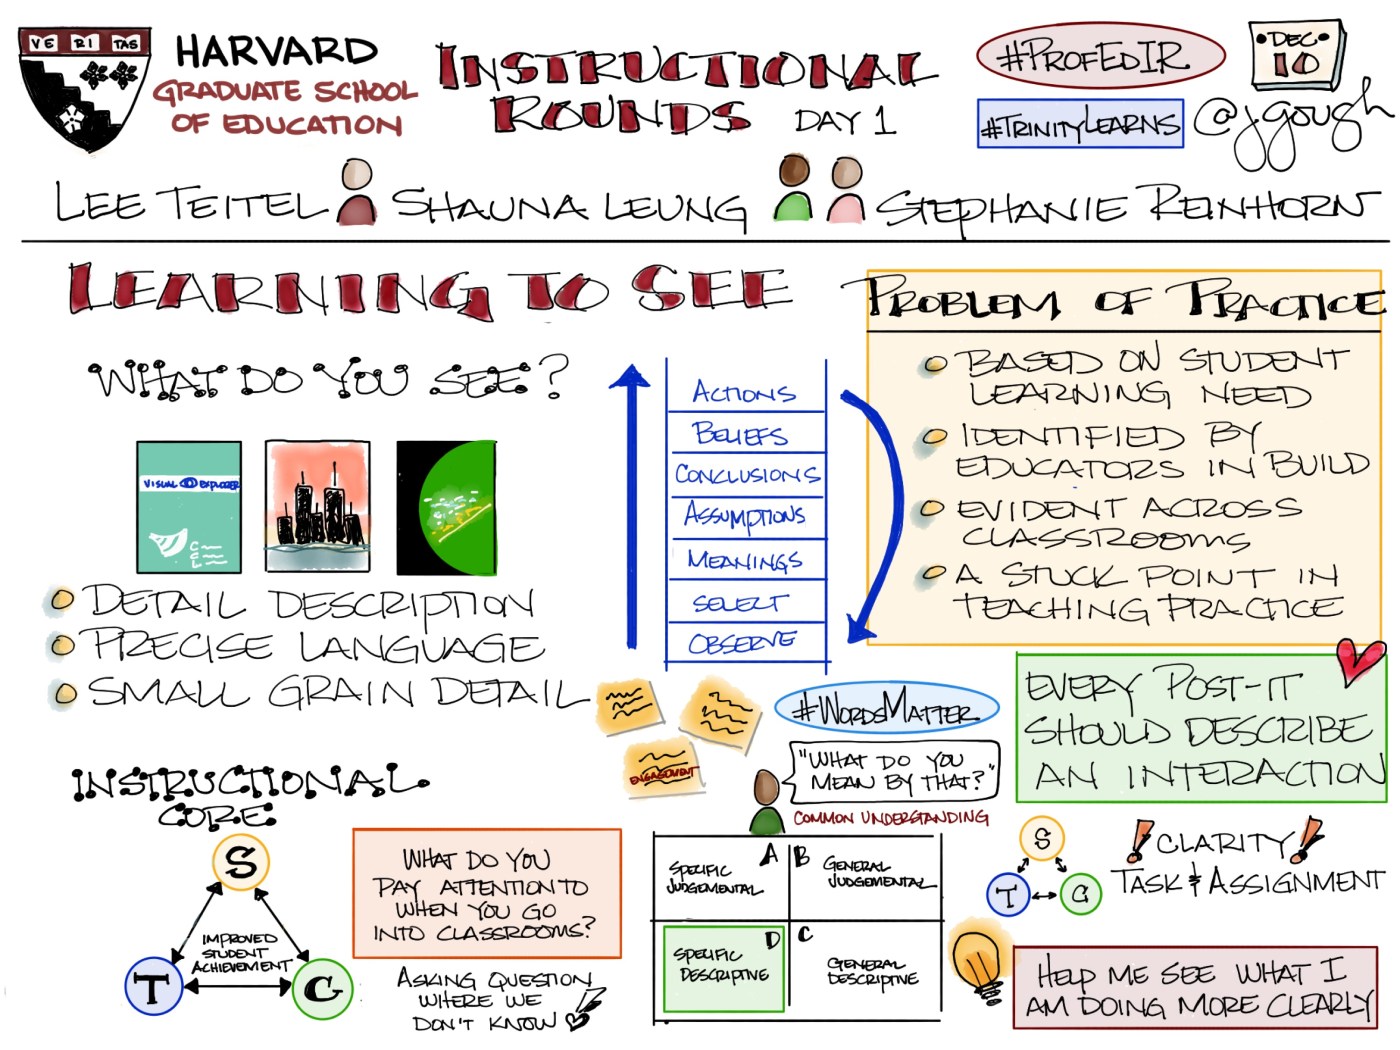 VE RI TAS
HARVARD
GRADUATE SCHOOL
OF EDUCATION
INSTRUCTIONAL
ROUNDS DAY 1
#PROFEDIR
DEC
10
#TRINITYLEARNS
@jgough
LEE TEITEL SHAUNA LEUNG STEPHANIE REINHORN
LEARNING TO SEE
WHAT DO YOU SEE?
VISUAL EXPLORER
CCL
DETAIL DESCRIPTION
PRECISE LANGUAGE
SMALL GRAIN DETAIL
ACTIONS
BELIEFS
CONCLUSIONS
ASSUMPTIONS
MEANINGS
SELECT
OBSERVE
PROBLEM OF PRACTICE
BASED ON STUDENT
LEARNING NEED
IDENTIFIED BY
EDUCATORS IN BUILD
EVIDENT ACROSS
CLASSROOMS
A STUCK POINT IN
TEACHING PRACTICE
ENGAGEMENT
#WORDSMATTER
"WHAT DO YOU
MEAN BY THAT?"
COMMON UNDERSTANDING
EVERY POST-IT
SHOULD DESCRIBE
AN INTERACTION
INSTRUCTIONAL
CORE
S
IMPROVED
STUDENT
ACHIEVEMENT
T
C
WHAT DO YOU
PAY ATTENTION TO
WHEN YOU GO
INTO CLASSROOMS?
ASKING QUESTION
WHERE WE
DON'T KNOW
A
SPECIFIC
JUDGEMENTAL
B
GENERAL
JUDGEMENTAL
D
SPECIFIC
DESCRIPTIVE
C
GENERAL
DESCRIPTIVE
S
T
C
! CLARITY !
TASK & ASSIGNMENT
HELP ME SEE WHAT I
AM DOING MORE CLEARLY